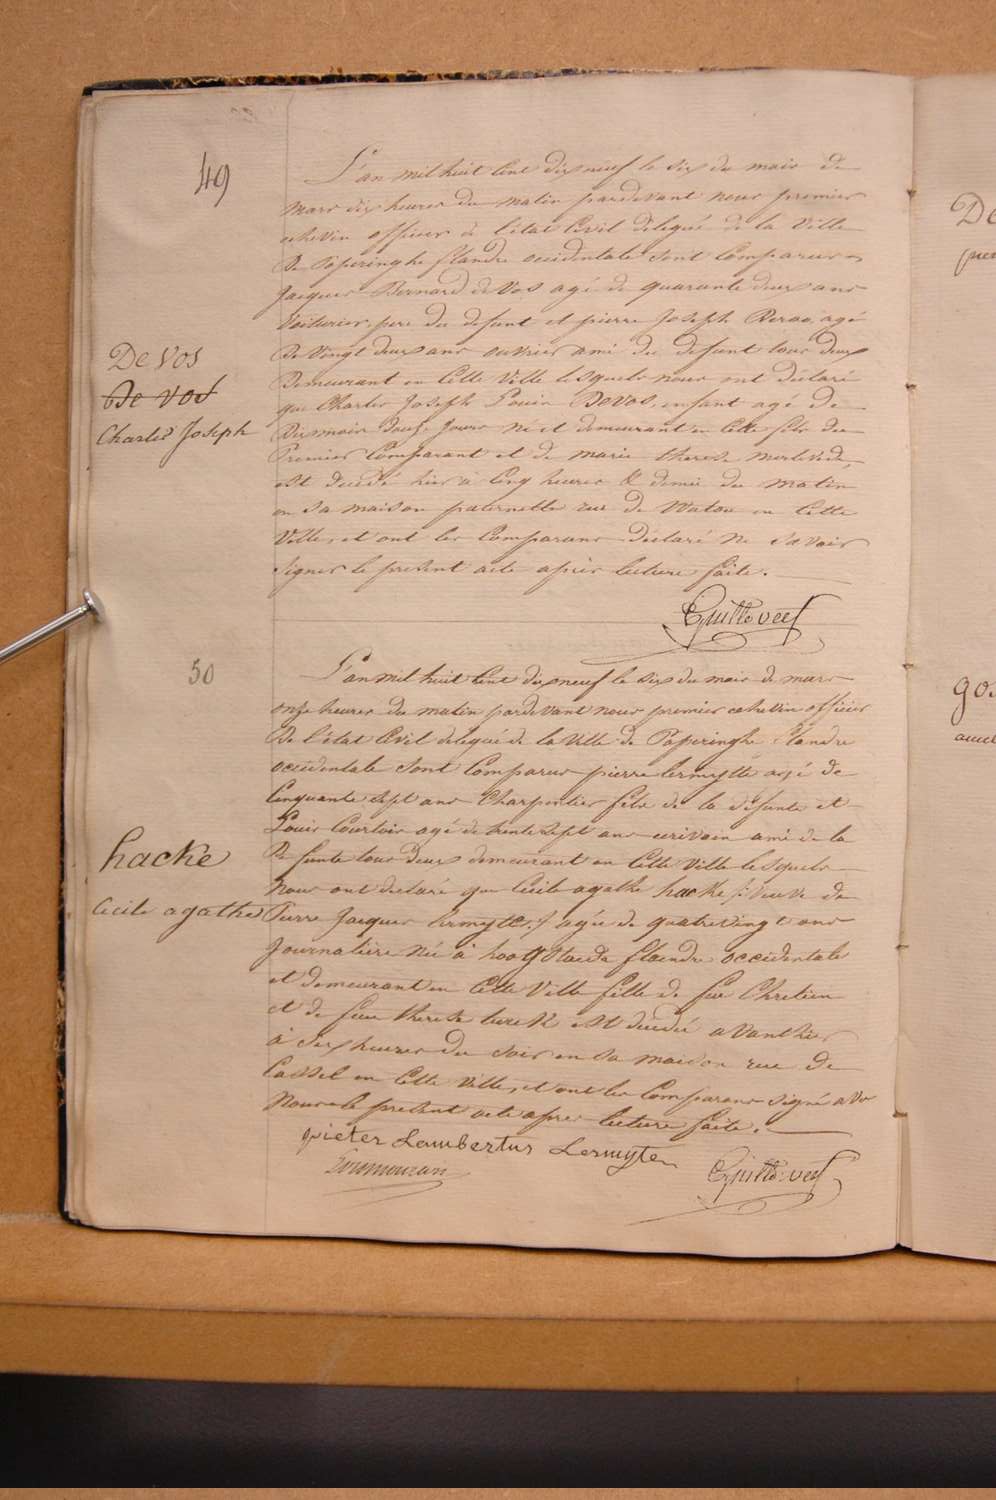 49
L'an mil huit cent dix neuf le six du mois de
mars dix heures du matin pardevant nous premier
echevin officier de l'état Civil delegué de la Ville
De Poperinghe flandre occidentale sont Comparus
Jacques Bernard de Vos agé de quarante deux ans
Voiturier, pere du defunt et pierre Joseph agé
De vingt deux ans ouvrier ami du defunt tous deux
Demeurant en Cette Ville lesquels nous ont déclaré
que Charles Joseph Louis De Vos, enfant agé de
mois Jours né et demeurant en Cette fils du
Premier Comparant et de marie therese
est decedé hier à Cinq heures & demie du matin
en sa maison paternelle rue de Watou en Cette
Ville, et ont les Comparans déclaré ne savoir
signer le présent acte après lecture faite.
De Vos
De Vos
Charles Joseph
50
L'an mil huit Cent dix neuf le six du mois de mars
onze heures du matin pardevant nous premier echevin officier
De l'état Civil delegué de la Ville de Poperinghe flandre
occidentale sont Comparus pierre lermytte agé de
Cinquante sept ans Charpentier fils de la défunte et
Louis Courtois agé de trente sept ans ecrivain ami de la
Defunte tous deux demeurant en Cette Ville lesquels
Nous ont declaré que Cecile agathe hacke /: Veuve de
Pierre Jacques lermytte :/ agée de quatre vingt ans
Journaliere Née à hoogstaede flandre occidentale
et demeurant en Cette Ville fille de feu Chretien
et de feue therese est décédée avanthier
à Six heures du soir en sa maison rue de
Cassel en Cette Ville, et ont les Comparans signé avec
Nous le présent acte après lecture faite.
hacke
Cecile agathe
pieter Lambertus Lermyte
De
go